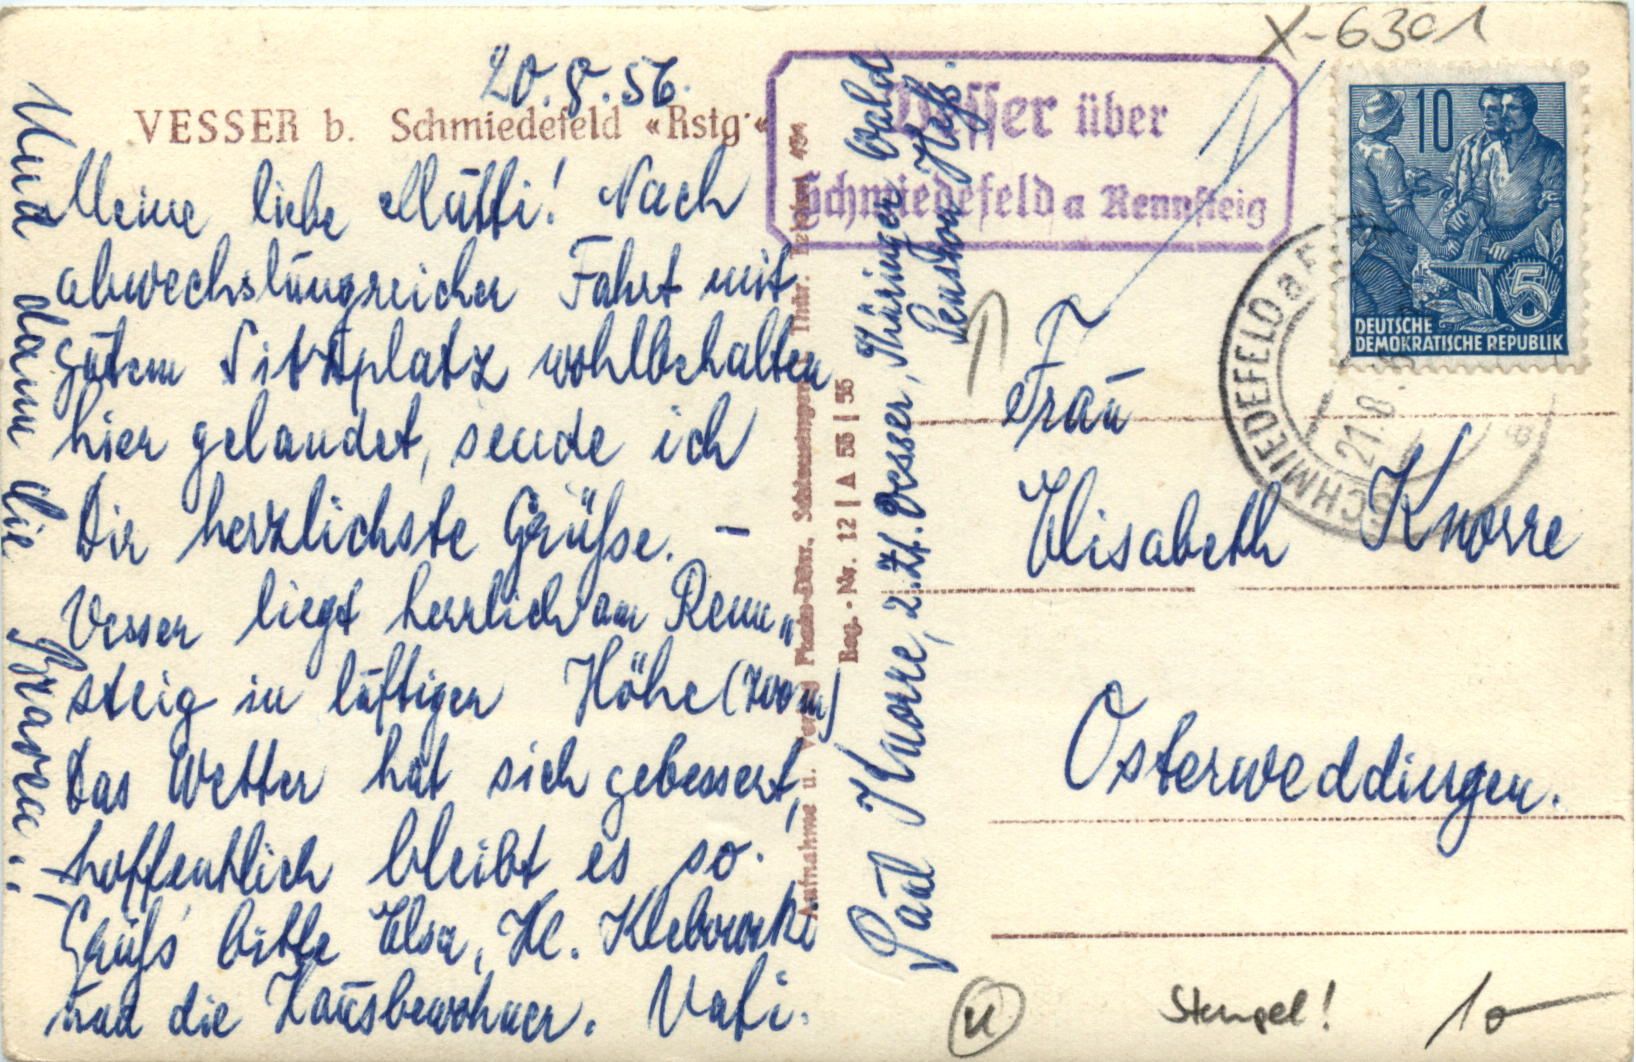 20.8.56.
VESSER b. Schmiedefeld «Rstg.«
Meine liebe Mutti! Nach
abwechslungreicher Fahrt mit
gutem Sitzplatz wohlbehalten
hier gelandet, sende ich
Dir herzlichste Grüße. –
Vesser liegt herrlich am Renn„
steig in luftiger Höhe (700 m)
Das Wetter hat sich gebessert,
hoffentlich bleibt es so.
Grüß bitte Elsa,
und die Hausbewohner. Vati.
Und dann die Braven..
Aufnahme u. Verlag Schleusingen Thür.
Reg.-Nr. 12 | A 55 | 55
Paul Knorre, z. Zt. Vesser, Thüringer Wald
Pension Heß.
Vesser über
Schmiedefeld a Rennsteig
X-6301
10
5
DEUTSCHE
DEMOKRATISCHE REPUBLIK
SCHMIEDEFELD a
21.8
Frau
Elisabeth Knorre
Osterweddingen.
Stempel!
10-